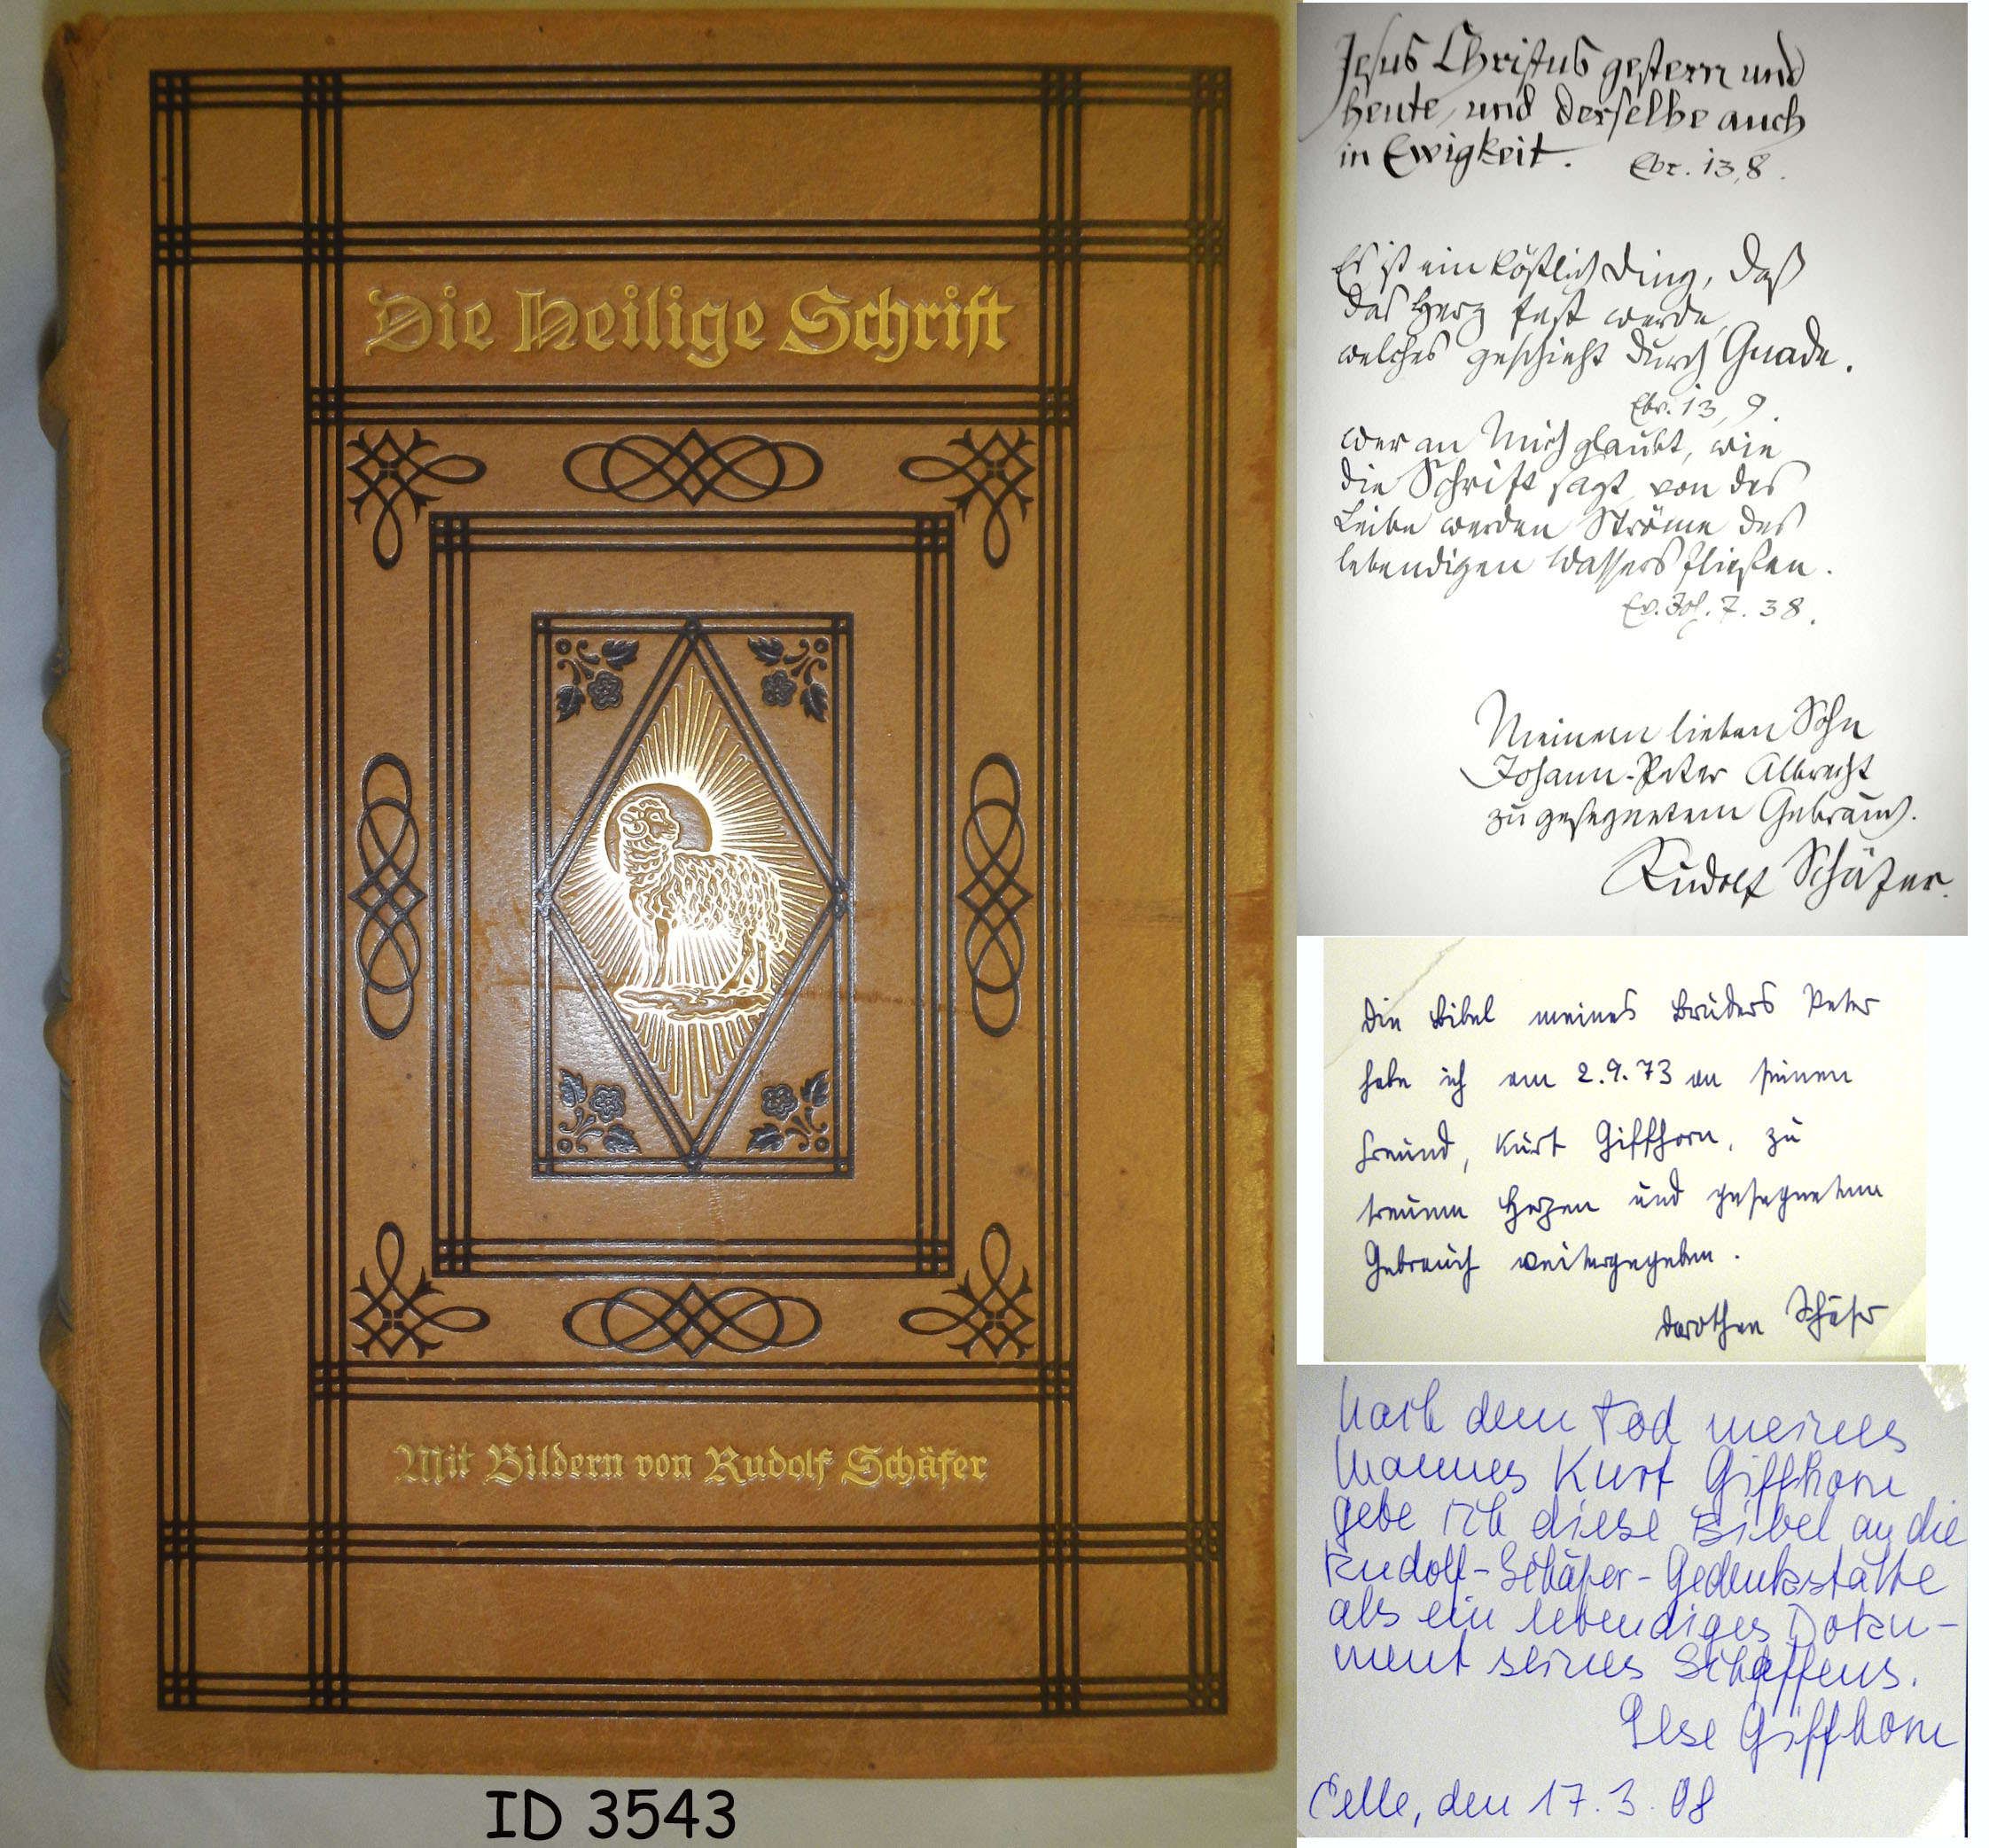 Die Heilige Schrift
Mit Bildern von Rudolf Schäfer
ID 3543
Jesus Christus gestern und
heute, und derselbe auch
in Ewigkeit. Ebr. 13,8.
Es ist ein köstlich Ding, daß
das Herz fest werde,
welches geschieht durch Gnade.
Ebr. 13, 9.
Wer an Mich glaubt, wie
die Schrift sagt, von des
Leibe werden Ströme des
lebendigen Wassers fließen.
Ev. Joh. 7. 38.
Meinem lieben Sohn
Johann-Peter Albrecht
zu gesegnetem Gebrauch.
Rudolf Schäfer.
Die Bibel meines Bruders Peter
habe ich am 2.9.73 an seinen
Freund, Kurt Giffhorn, zu
treuem Herzen und gesegnetem
Gebrauch weitergegeben.
Dorothea Schäfer
Nach dem Tod meines
Mannes Kurt Giffhorn
gebe ich diese Bibel an die
Rudolf-Schäfer-Gedenkstätte
als ein lebendiges Doku-
ment seines Schaffens.
Ilse Giffhorn
Celle, den 17.3.08